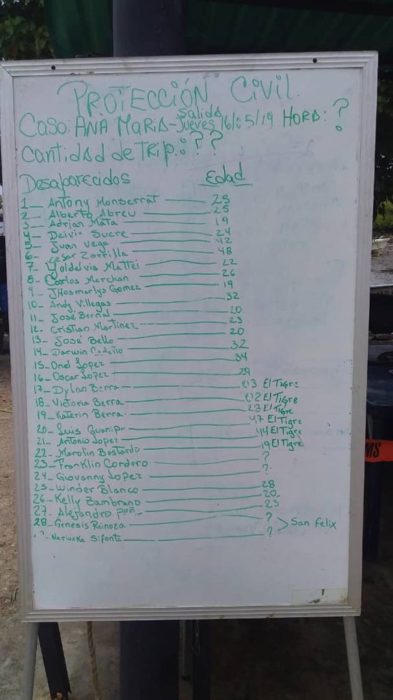 PROTECCIÓN CIVIL.
Salida
Caso: ANA MARIA - Jueves 16/05/19 HORA: ?
Cantidad de Trip.: ??
Desaparecidos Edad
1_ Antony Monserrat 25
2_ Alberto Abreu 25
3_ Adrian Mata 19
4_ Deivis Sucre 24
5_ Juan Vega 42
6_ Cesar Zorrilla 48
7_ Yoldelvis Mattei 22
8_ Carlos Merchan 26
9_ Jhosmarlys Gomez 19
10_ Andy Villegas 32
11_ José Bernal 20
12_ Cristian Martinez 23
13_ José Bello 20
14_ Darwin 32
15_ Onel Lopez 34
16_ Oscar Lopez
17_ Dylan Berra 03 El Tigre
18_ Victoria Berra 02 El Tigre
19_ Katerin Berra 23 El Tigre
20_ Luis Guaripe 47 El Tigre
21_ Antonio Lopez 14 El Tigre
22_ Marolin Bastardo 19 El Tigre
23_ Franklin Cordero ?
24_ Giovanny Lopez ?
25_ Winder Blanco 28
26_ Kelly Zambrano 20
27_ Alejandro 25
28_ Genesis ? > San Felix
?_ Neriuska Sifonte ?
MS